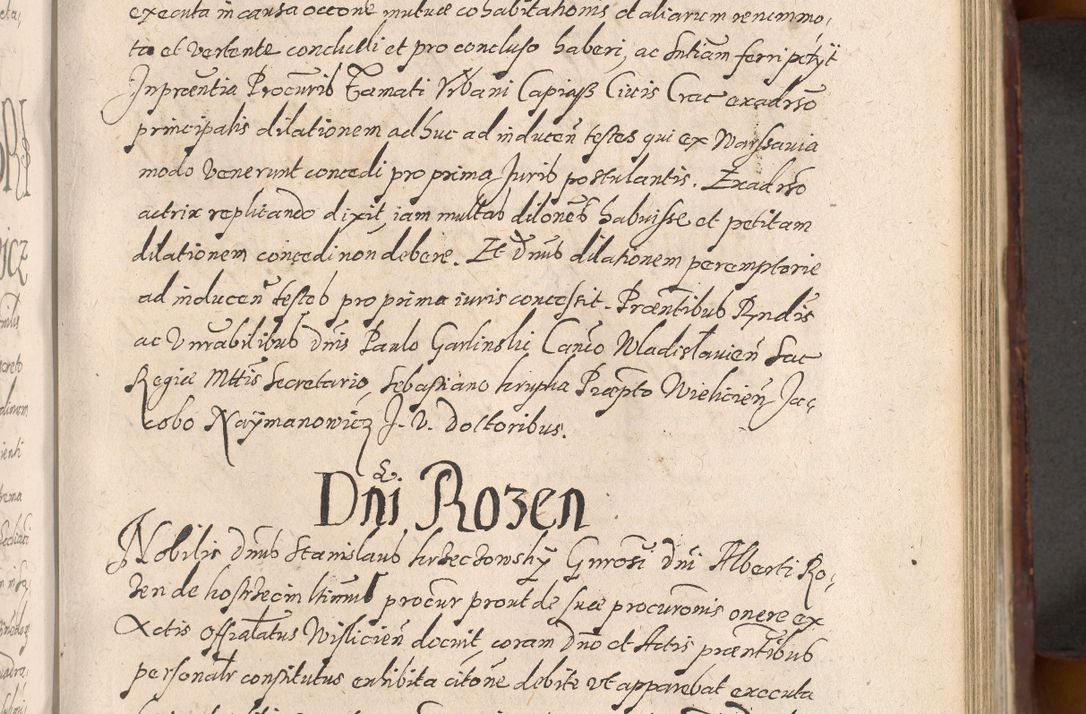 executa in causa occone mutuæ cohabitationis et aliarum renimmo,
to et vertente concludi et pro concluso haberi, ac Sntiam ferri petÿt
Inprœntia Procuris Famati Vrbani Capiuß Ciuis Crac ex adrso
principalis dilationem adhuc ad inducen̄ testes qui ex Warssauia
modo venerunt concedi pro prima Juris postulantis. Ex adrso
actrix replicando dixit iam multas dilones habuisse et petitam
dilationem concedi non debere. Et Dnus dilationem peremptorie
ad inducen̄ testes pro prima iuris concessit. Præntibus Rndis
ac Vnrabilibus Dnis Paulo Garlinski Canco Wladislauien̄ Sac
Regiæ Mttis Secretario, Sebastiano krupka Præpto Wielicien̄ Ja¿
cobo Naÿmanowicz J. V. Doctoribus.
Dni Rozen
Nobilis Dnus Stanislaus krzeczowskÿ Gnrosi Dni Alberti Ro,
zen de kosrzecin ltimus procur prout de suæ procuronis onere ex
Actis Offialatus Wislicien̄ docuit, coram Dno et Actis præntibus
personalr constitutus exhibita citone debite vt apparebat executa